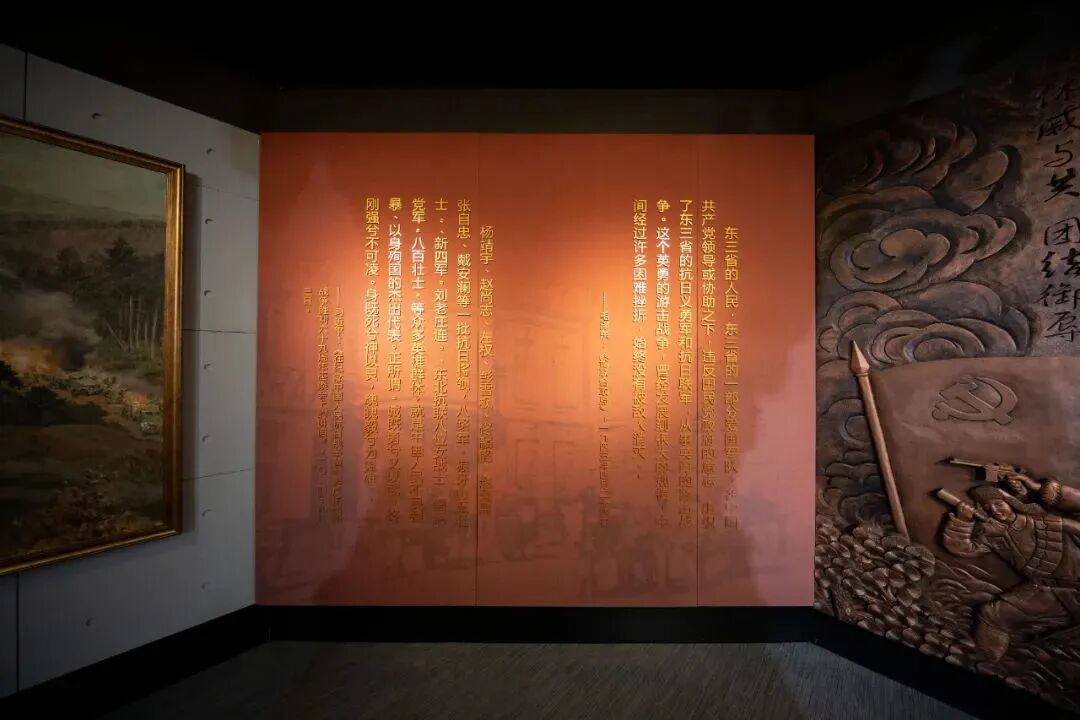 戚与共 团结御辱
东三省的人民，东三省的一部分爱国军队，在中国
共产党领导或协助之下，违反国民党政府的意志，组织
了东三省的抗日义勇军和抗日联军，从事英勇的游击战
争。这个英勇的游击战争，曾经发展到很大的规模，中
间经过许多困难挫折，始终没有被敌人消灭。
——毛泽东：《论联合政府》，一九四五年四月二十四日
杨靖宇、赵尚志、左权、彭雪枫、佟麟阁、赵登禹、
张自忠、戴安澜等一批抗日将领，八路军“狼牙山五壮
士”、新四军“刘老庄连”、东北抗联八位女战士、国民
党军“八百壮士”等众多英雄群体，就是中国人民不畏强
暴、以身殉国的杰出代表。正所谓“诚既勇兮又以武，终
刚强兮不可凌。身既死兮神以灵，魂魄毅兮为鬼雄。”
——习近平：《在纪念中国人民抗日战争暨世界反法西斯
战争胜利六十九周年座谈会上的讲话》，二〇一四年九月
三日。